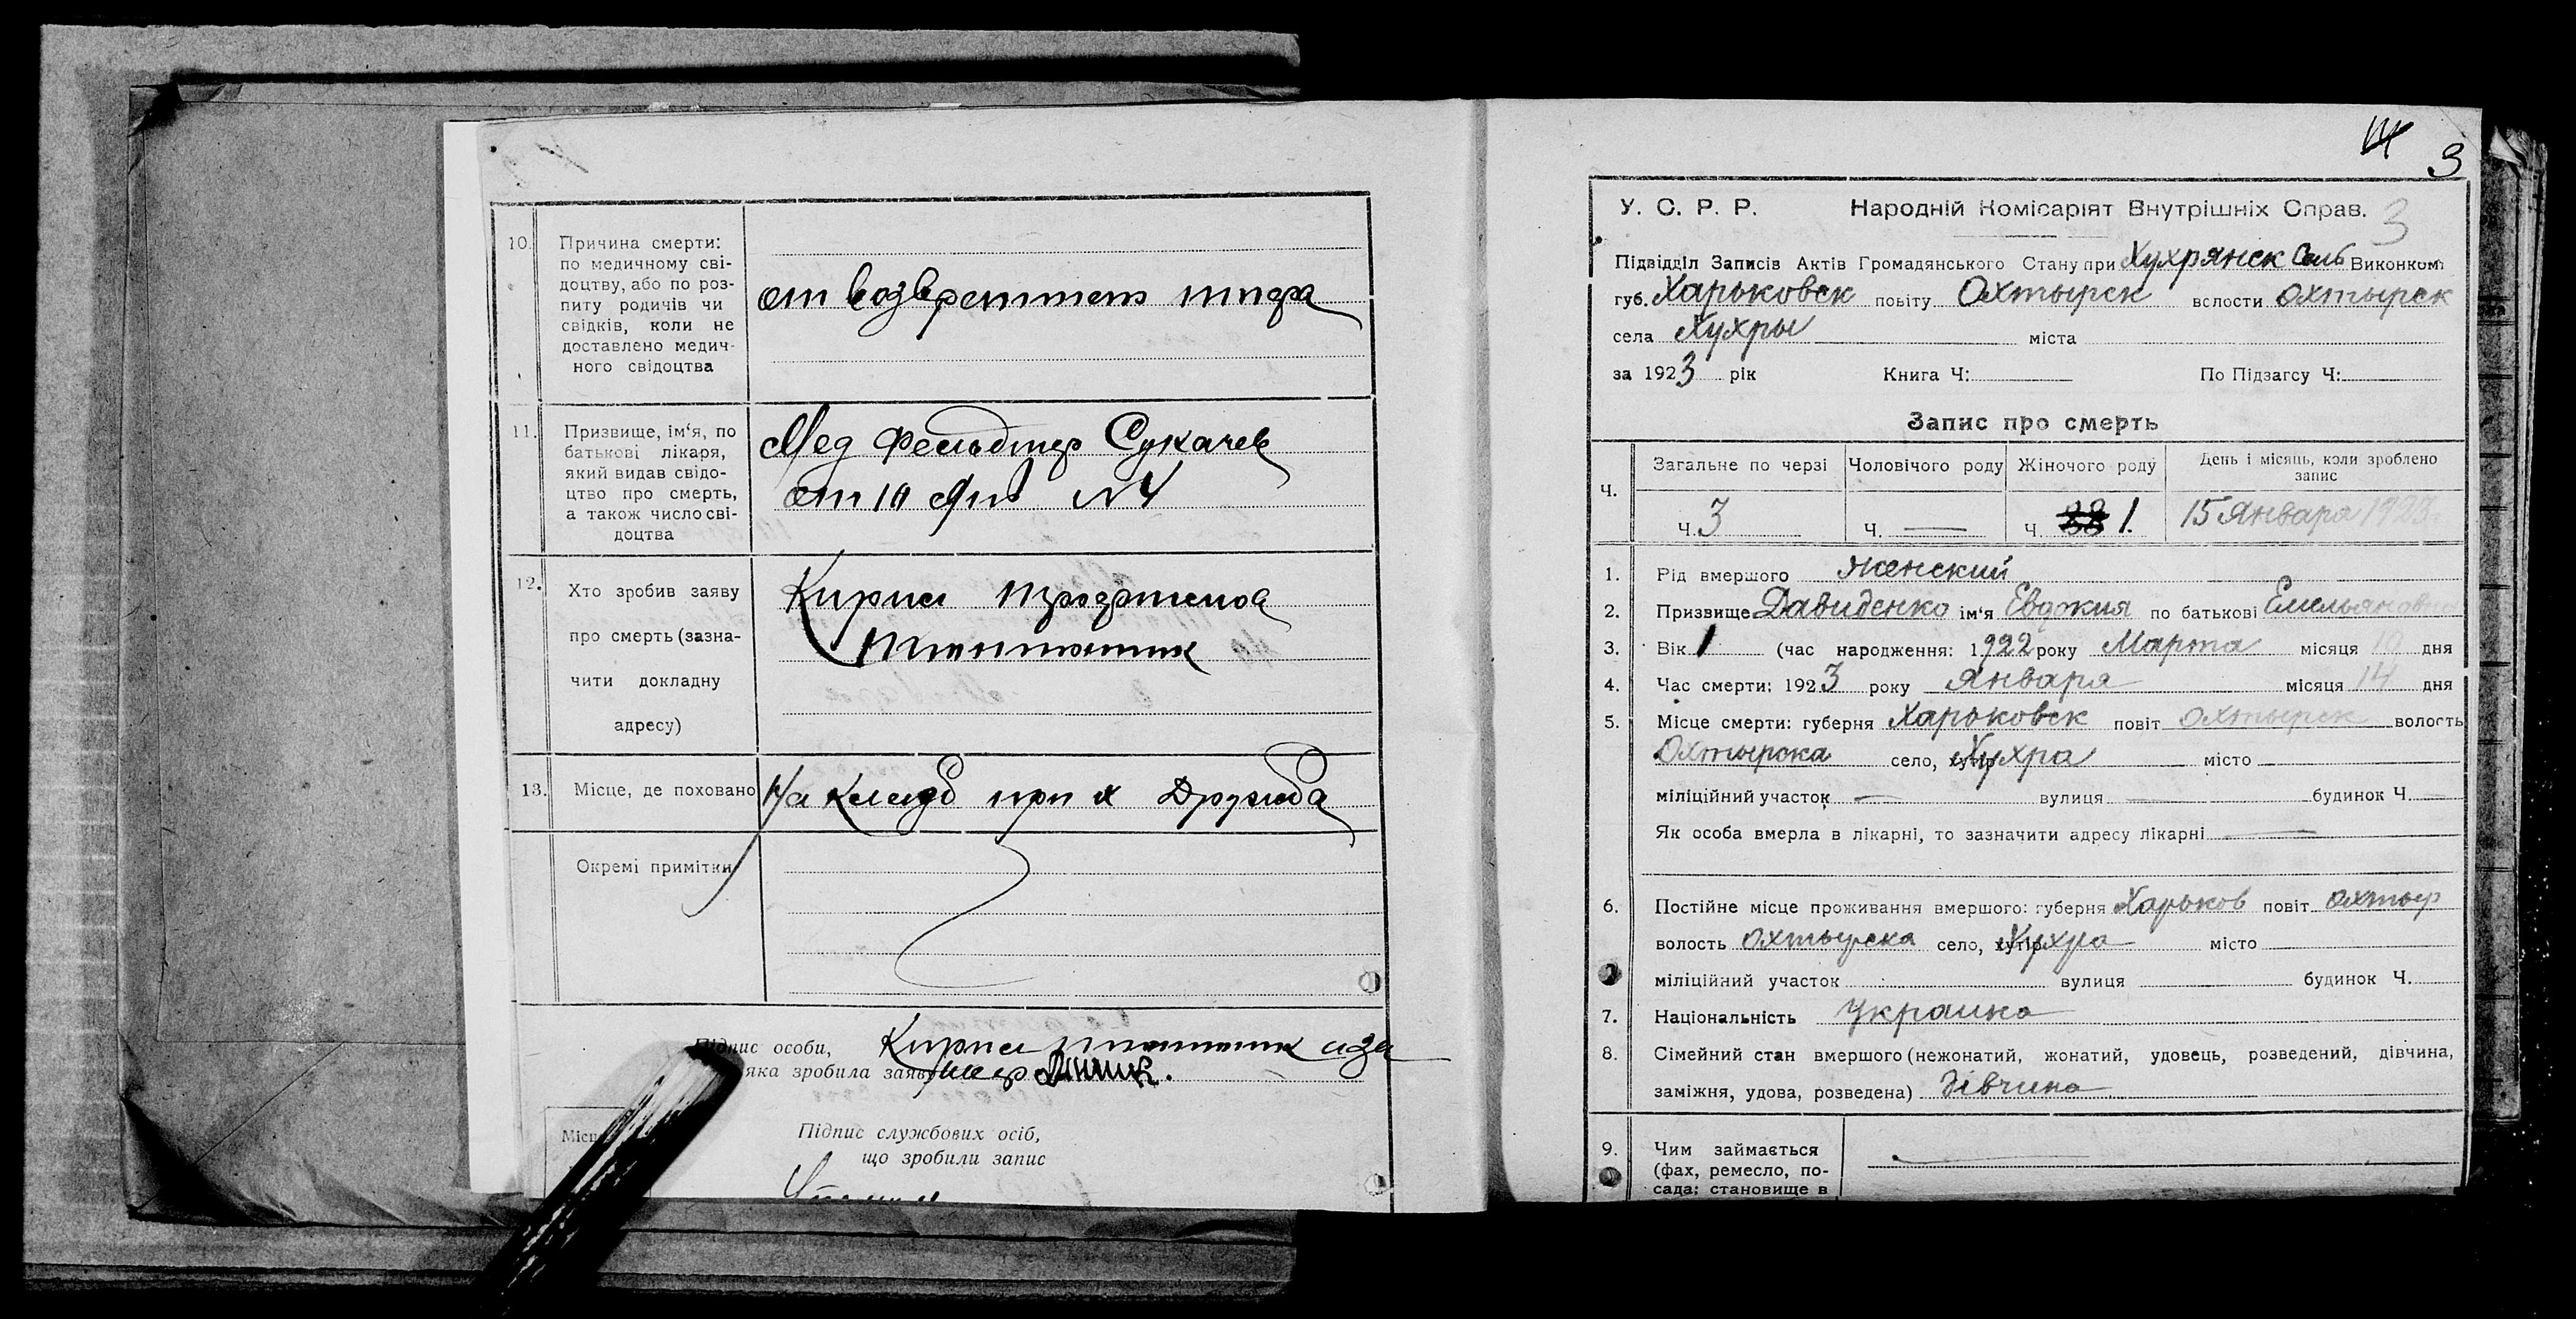 10. Причина смерти:
по медичному сві-
доцтву, або по роз-
питу родичів чи
свідків, коли не
доставлено медич-
ного свідоцтва
от возвратнаго тифа
11. Призвище, ім‘я, по
батькові лікаря,
який видав свідо-
цтво про смерть,
а також число сві-
доцтва
Мед Фельдшер Сукачев
от 10 Янв N4
12. Хто зробив заяву
про смерть (зазна-
чити докладну
адресу)
Кирил
13. Місце, де поховано
На кладб при х Дружба
Окремі примітки
Підпис особи, Кирил
яка зробила заяву
Підпис службових осіб,
що зробили запис
3
У. С. Р. Р. Народній Комісаріят Внутрішніх Справ. 3
Підвідділ Записів Актів Громадянського Стану при Хухрянск Сель Виконком
губ. Харьковск повіту Охтырск волости Охтырск
села Хухры міста
за 1923 рік Книга Ч: По Підзагсу Ч:
Запис про смерть
Ч. Загальне по черзі Чоловічого роду Жіночого роду День і місяць, коли зроблено
запис
Ч. 3 Ч. — Ч. 1. 15 Января 1923.
1. Рід вмершого женский
2. Призвище Давиденко ім‘я Евдокия по батькові Емельяновна
3. Вік 1 (час народження: 1922 року Марта місяця 10 дня
4. Час смерти: 1923 року Января місяця 14 дня
5. Місце смерти: губерня Харьковск повіт Охтырск волость
Охтырска село, хутір Хухра місто
міліційний участок — вулиця — будинок Ч. —
Як особа вмерла в лікарні, то зазначити адресу лікарні —
6. Постійне місце проживання вмершого: губерня Харьков повіт Охтыр
волость Охтырска село, хутір Хухра місто
міліційний участок вулиця будинок Ч.
7. Національність Украинка
8. Сімейний стан вмершого (нежонатий, жонатий, удовець, розведений, дівчина,
заміжня, удова, розведена) дівчина
9. Чим займається
(фах, ремесло, по-
сада; становище в